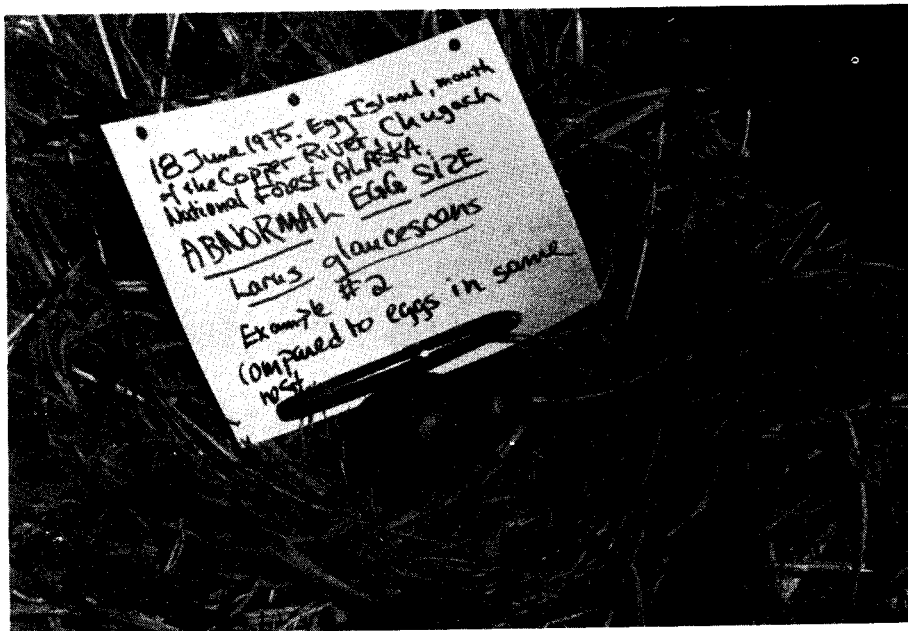 18 June 1975. Egg Island, mouth
of the Copper River, Chugach
National Forest, ALASKA.
ABNORMAL EGG SIZE
Larus glaucescens
Example #2
Compared to eggs in same
nest